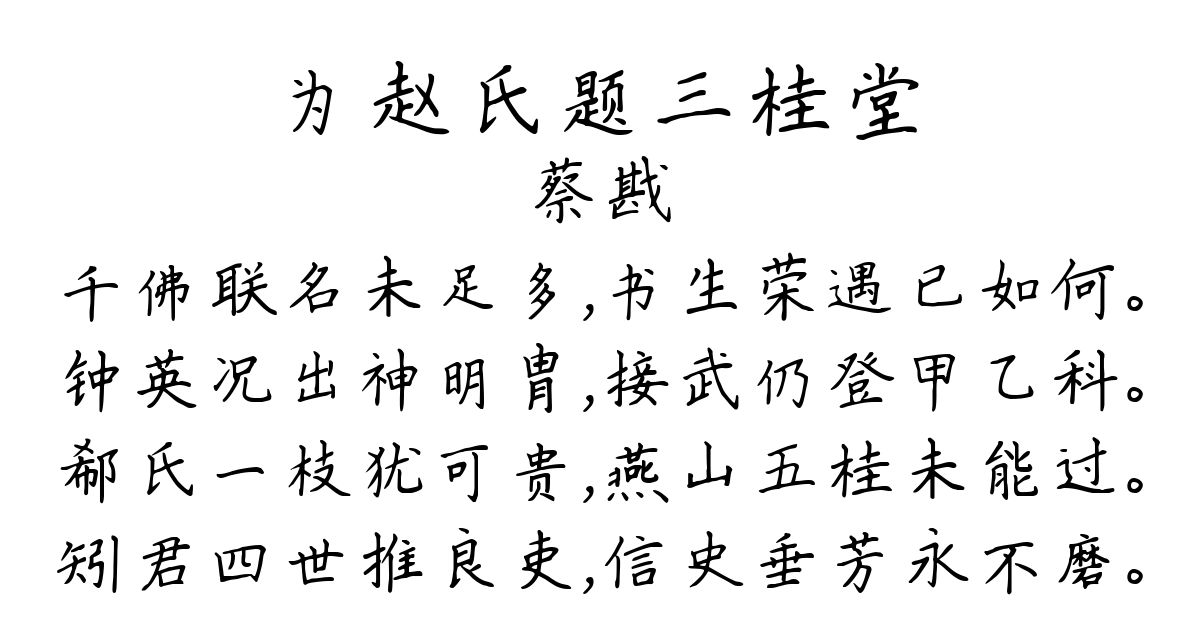 为赵氏题三桂堂
蔡戡
千佛联名未足多,书生荣遇已如何。
钟英况出神明胄,接武仍登甲乙科。
郗氏一枝犹可贵,燕山五桂未能过。
矧君四世推良吏,信史垂芳永不磨。